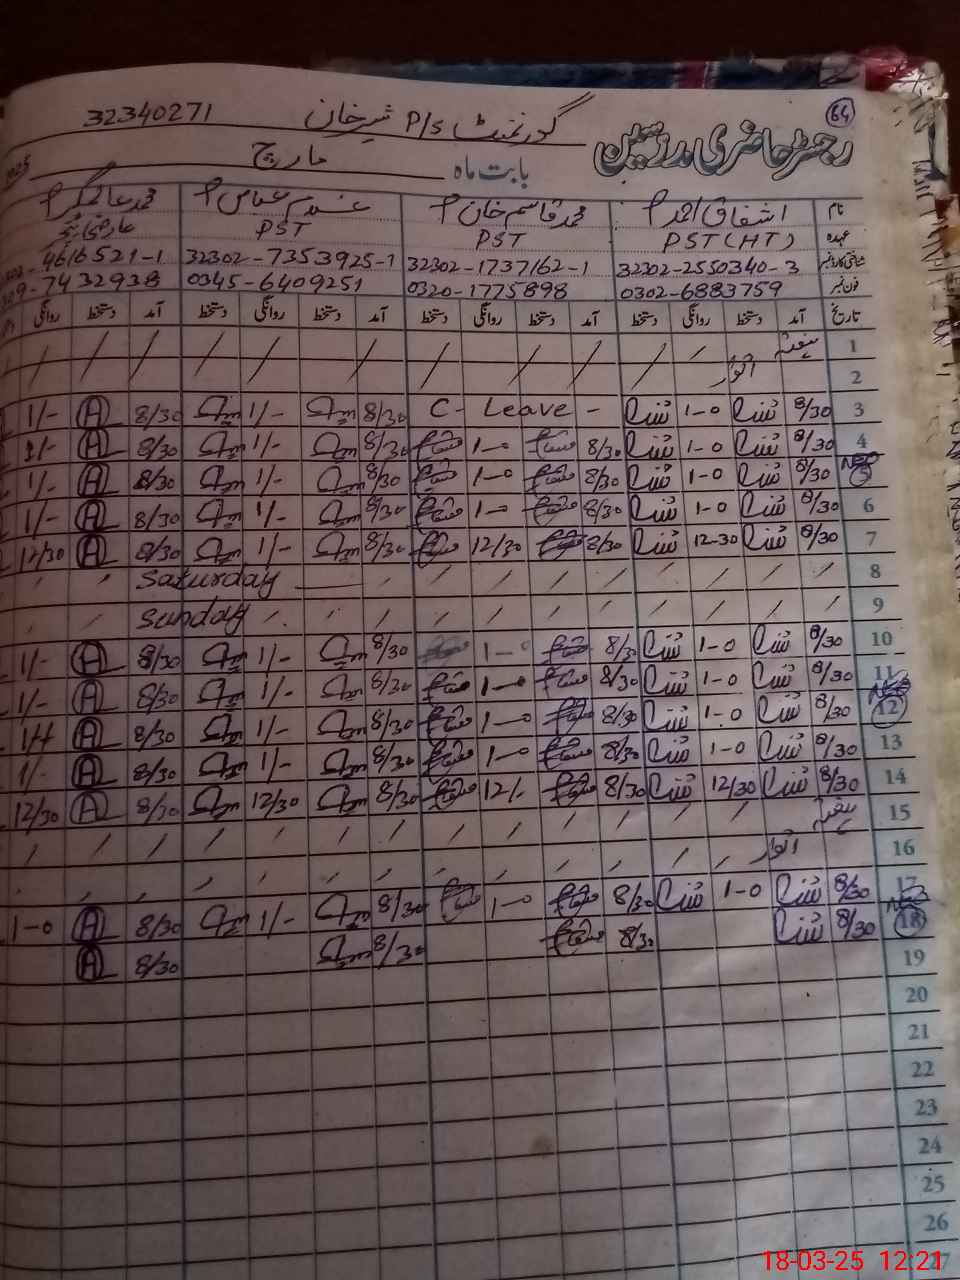 64
گورنمنٹ P/s شیر خان 32340271
رجسٹر حاضری مدرسین
بابت ماہ مارچ
نام اشفاق احمد محمد قاسم خان غلام عباس محمد عالمگیر
عہدہ PST (HT) PST PST عارضی ٹیچر
شناختی کارڈ نمبر 32302-2550340-3 32302-1737162-1 32302-7353925-1 4616521-1
فون نمبر 0302-6883759 0320-1775898 0345-6409251 7432938
تاریخ آمد دستخط روانگی دستخط آمد دستخط روانگی دستخط آمد دستخط روانگی دستخط آمد دستخط روانگی
1 ہفتہ
2 اتوار
3 8/30 1-0 C- Leave - 8/30 1/- 8/30 1/-
4 8/30 1-0 8/30 1-0 8/30 1/- 8/30 1/-
5 8/30 1-0 8/30 1-0 8/30 1/- 8/30 1/-
6 8/30 1-0 8/30 1-0 8/30 1/- 8/30 1/-
7 8/30 12-30 8/30 12/30 8/30 1/- 8/30 12/30
8 Saturday
9 Sunday
10 8/30 1-0 8/30 1-0 8/30 1/- 8/30 1/-
11 8/30 1-0 8/30 1-0 8/30 1/- 8/30 1/-
12 8/30 1-0 8/30 1-0 8/30 1/- 8/30
13 8/30 1-0 8/30 1-0 8/30 1/- 8/30 1/-
14 8/30 12/30 8/30 12/- 8/30 12/30 8/30 12/30
15 ہفتہ
16 اتوار
17 8/30 1-0 8/30 1-0 8/30 1/- 8/30 1-0
18 8/30 8/30 8/30 8/30
19
20
21
22
23
24
25
26
27
18-03-25 12:21